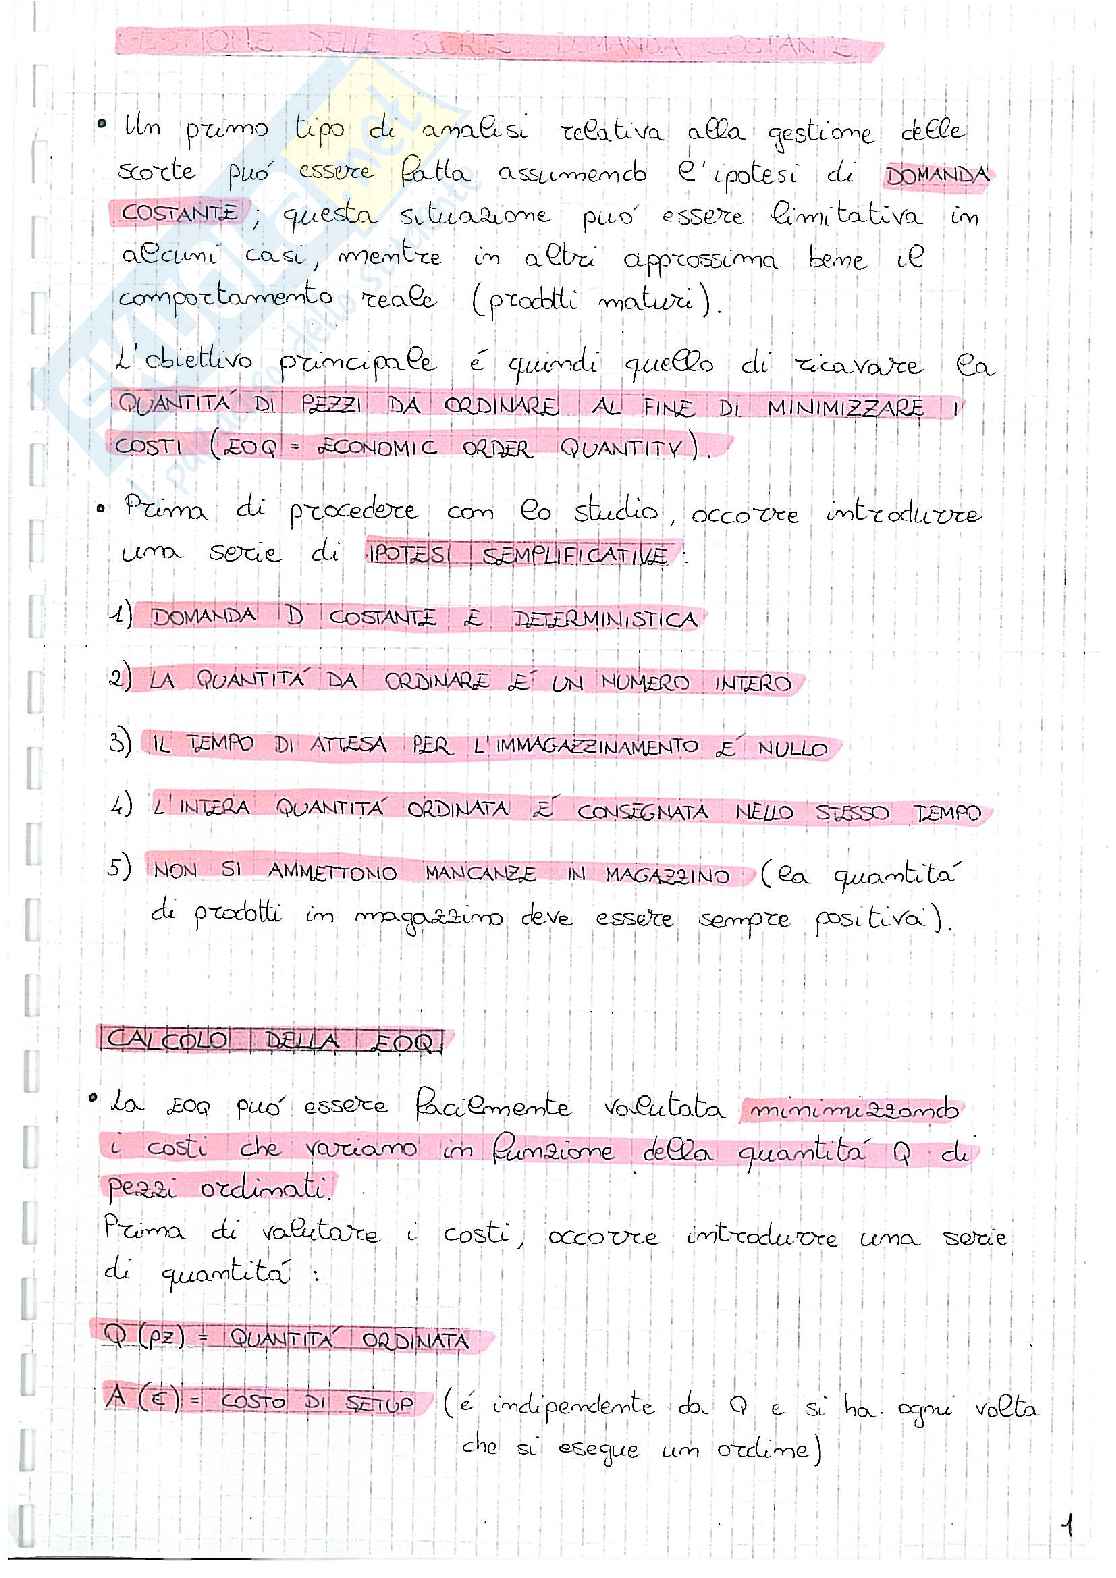 GESTIONE DELLE SCORTE: DOMANDA COSTANTE
• Un primo tipo di analisi relativa alla gestione delle
scorte puó essere fatta assumendo l'ipotesi di DOMANDA
COSTANTE; questa situazione puó essere limitativa in
alcuni casi, mentre in altri approssima bene il
comportamento reale (prodotti maturi).
L'obiettivo principale é quindi quello di ricavare la
QUANTITÁ DI PEZZI DA ORDINARE AL FINE DI MINIMIZZARE I
COSTI (EOQ = ECONOMIC ORDER QUANTITY).
• Prima di procedere con lo studio, occorre introdurre
una serie di IPOTESI SEMPLIFICATIVE:
1) DOMANDA D COSTANTE E DETERMINISTICA
2) LA QUANTITÁ DA ORDINARE É UN NUMERO INTERO
3) IL TEMPO DI ATTESA PER L'IMMAGAZZINAMENTO É NULLO
4) L'INTERA QUANTITÁ ORDINATA É CONSEGNATA NELLO STESSO TEMPO
5) NON SI AMMETTONO MANCANZE IN MAGAZZINO (la quantitá
di prodotti in magazzino deve essere sempre positiva).
CALCOLO DELLA EOQ
• La EOQ puó essere facilmente valutata minimizzando
i costi che variano in funzione della quantitá Q di
pezzi ordinati.
Prima di valutare i costi, occorre introdurre una serie
di quantitá:
Q (pz) = QUANTITÁ ORDINATA
A (€) = COSTO DI SETUP (é indipendente da Q e si ha ogni volta
che si esegue un ordine)
1